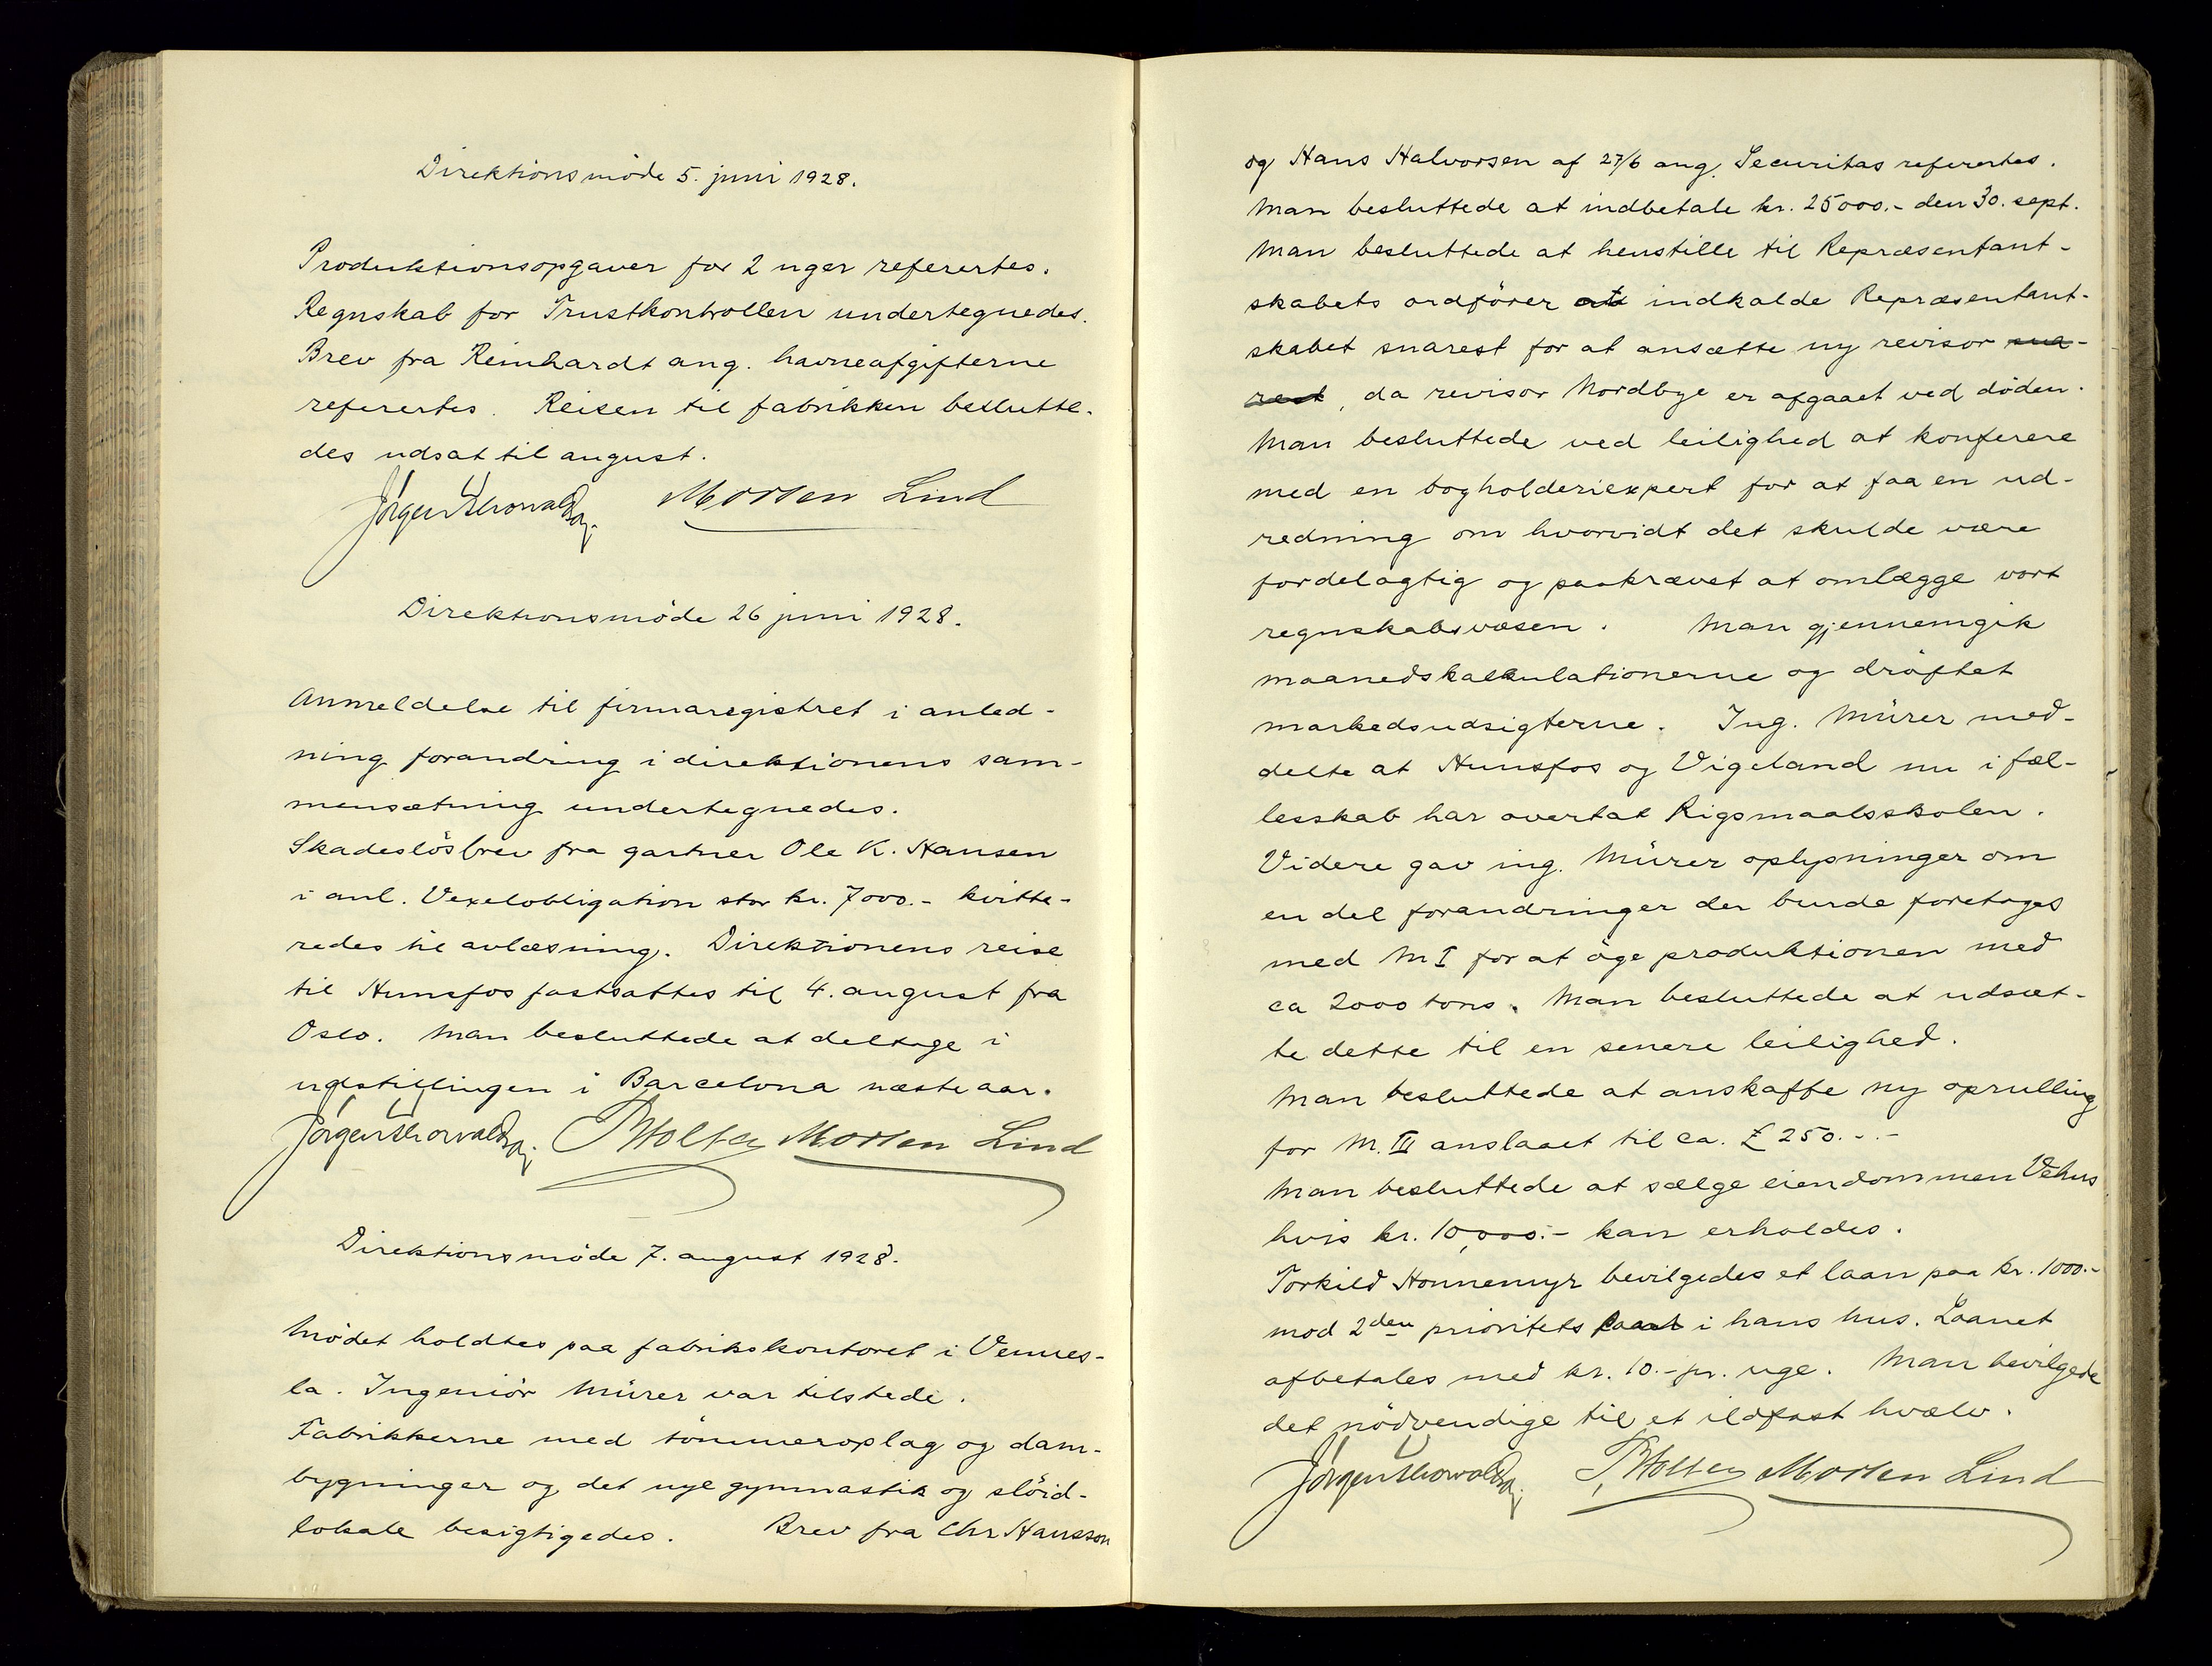 Direktionsmöde 5. juni 1928.
Produktionsopgaver for 2 uger referertes.
Regnskab for Trustkontrollen undertegnedes.
Brev fra Reinhardt ang. havneafgifterne
referertes. Reisen til fabrikken beslutte-
des udsat til august.
Jörgen Thorvaldsøn. Morten Lind
Direktionsmöde 26 juni 1928.
Anmeldelse til firmaregistret i anled-
ning forandring i direktionens sam-
mensætning undertegnedes.
Skadeslösbrev fra gartner Ole K. Hansen
i anl. Vexelobligation stor kr. 7000.- kvitte-
redes til avlæsning. Direktionens reise
til Hunsfos fastsattes til 4. august fra
Oslo. Man besluttede at deltage i
udstillingen i Barcelona næste aar.
Jörgen Thorvaldsøn. Morten Lind
Direktionsmöde 7. august 1928.
Mödet holdtes paa fabrikskontoret i Vennes-
la. Ingeniör Mürer var tilstede.
Fabrikkerne med tömmeroplag og dam-
bygninger og det nye gymnastik og slöid-
lokale besigtigedes. Brev fra Chr Hansson
og Hans Halvorsen af 27/6 ang. Securitas referertes.
Man besluttede at indbetale kr. 25000.- den 30. sept.
Man besluttede at henstille til Repræsentant-
skabets ordförer at indkalde Repræsentant-
skabet snarest for at ansætte ny revisor sna-
rest, da revisor Nordbye er afgaaet ved döden.
Man besluttede ved leilighed at konferere
med en bogholderiexpert for at faa en ud-
redning om hvorvidt det skulde være
fordelagtig og paakrævet at omlægge vort
regnskabsvæsen. Man gjennemgik
maanedskalkulationerne og dröftet
markedsudsigterne. Ing. Mürer med-
delte at Hunsfos og Vigeland nu i fæl-
lesskab har overtat Rigsmaalsskolen.
Videre gav ing. Mürer oplysninger om
en del forandringer der burde foretages
med M I for at öge produktionen med
ca 2000 tons. Man besluttede at udsæt-
te dette til en senere leilighed.
Man besluttede at anskaffe ny oprulling
for M. III anslaaet til ca. £ 250.-.-
Man besluttede at sælge eiendommen Vehus
hvis kr. 10,000.- kan erholdes.
Torkild Honnemyr bevilgedes et laan paa kr. 1000.-
mod 2den prioritets pant i hans hus. Laanet
afbetales med kr. 10.- pr. uge. Man bevilgede
det nödvendige til et ildfast hvælv.
Jörgen Thorvaldsøn. Morten Lind